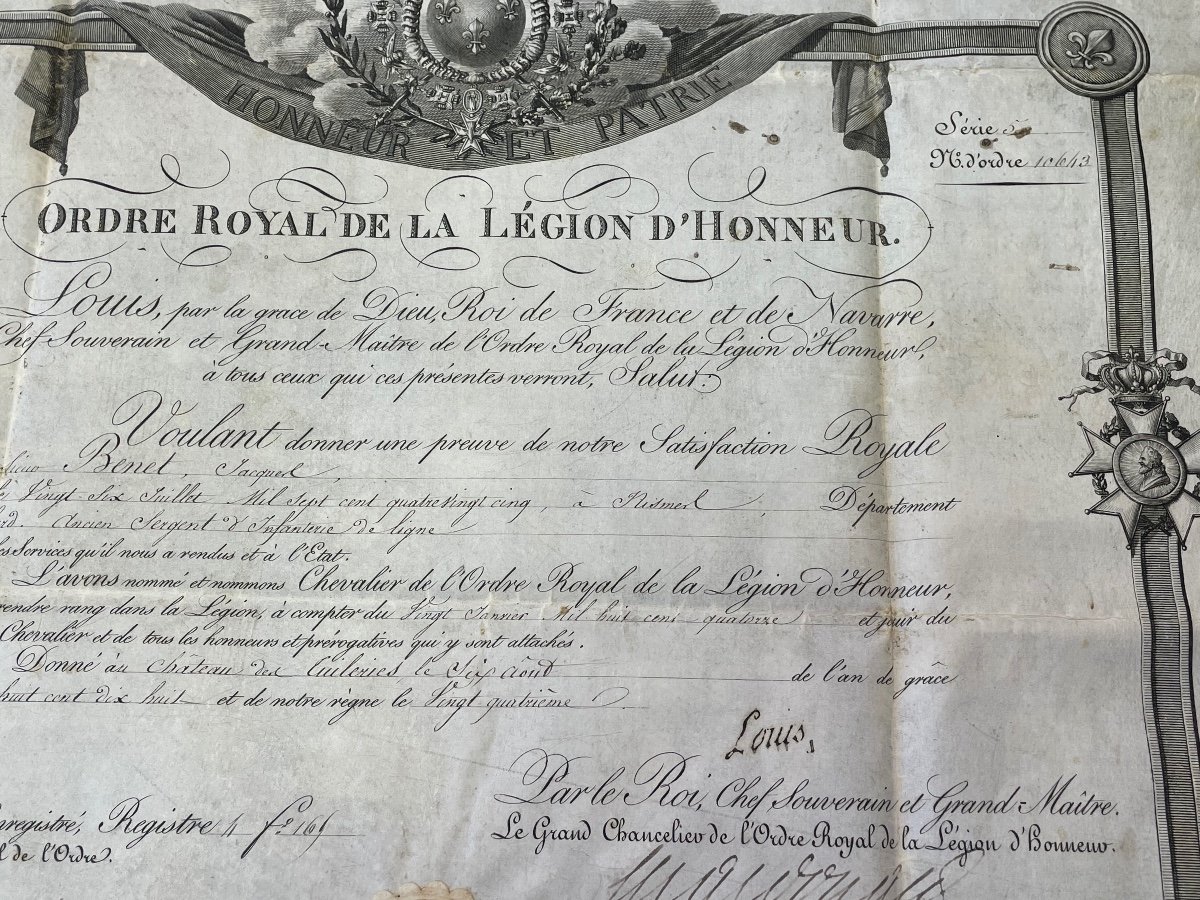 HONNEUR ET PATRIE
Série 5
N.º d'ordre 10643
ORDRE ROYAL DE LA LÉGION D'HONNEUR.
Louis, par la grace de Dieu, Roi de France et de Navarre,
Chef Souverain et Grand-Maître de l'Ordre Royal de la Légion d'Honneur,
à tous ceux qui ces présentes verront, Salut.
Voulant donner une preuve de notre Satisfaction Royale
Benet, Jacques
Vingt Six Juillet Mil Sept cent quatre Vingt cinq, à Nismes, Département
ard. Ancien Sergent d'Infanterie de ligne
les Services qu'il nous a rendus et à l'Etat.
L'avons nommé et nommons Chevalier de l'Ordre Royal de la Légion d'Honneur,
rendre rang dans la Légion, à compter du Vingt Janvier Mil huit cent quatorze et jouir du
Chevalier et de tous les honneurs et prérogatives qui y sont attachés.
Donné au Château des Tuileries, le Six Août de l'an de grâce
huit cent dix huit et de notre règne le Vingt-quatrième
Louis,
Par le Roi, Chef Souverain et Grand-Maître.
Le Grand Chancelier de l'Ordre Royal de la Légion d'honneur.
nregistré, Registre 4 f.º
l de l'Ordre.